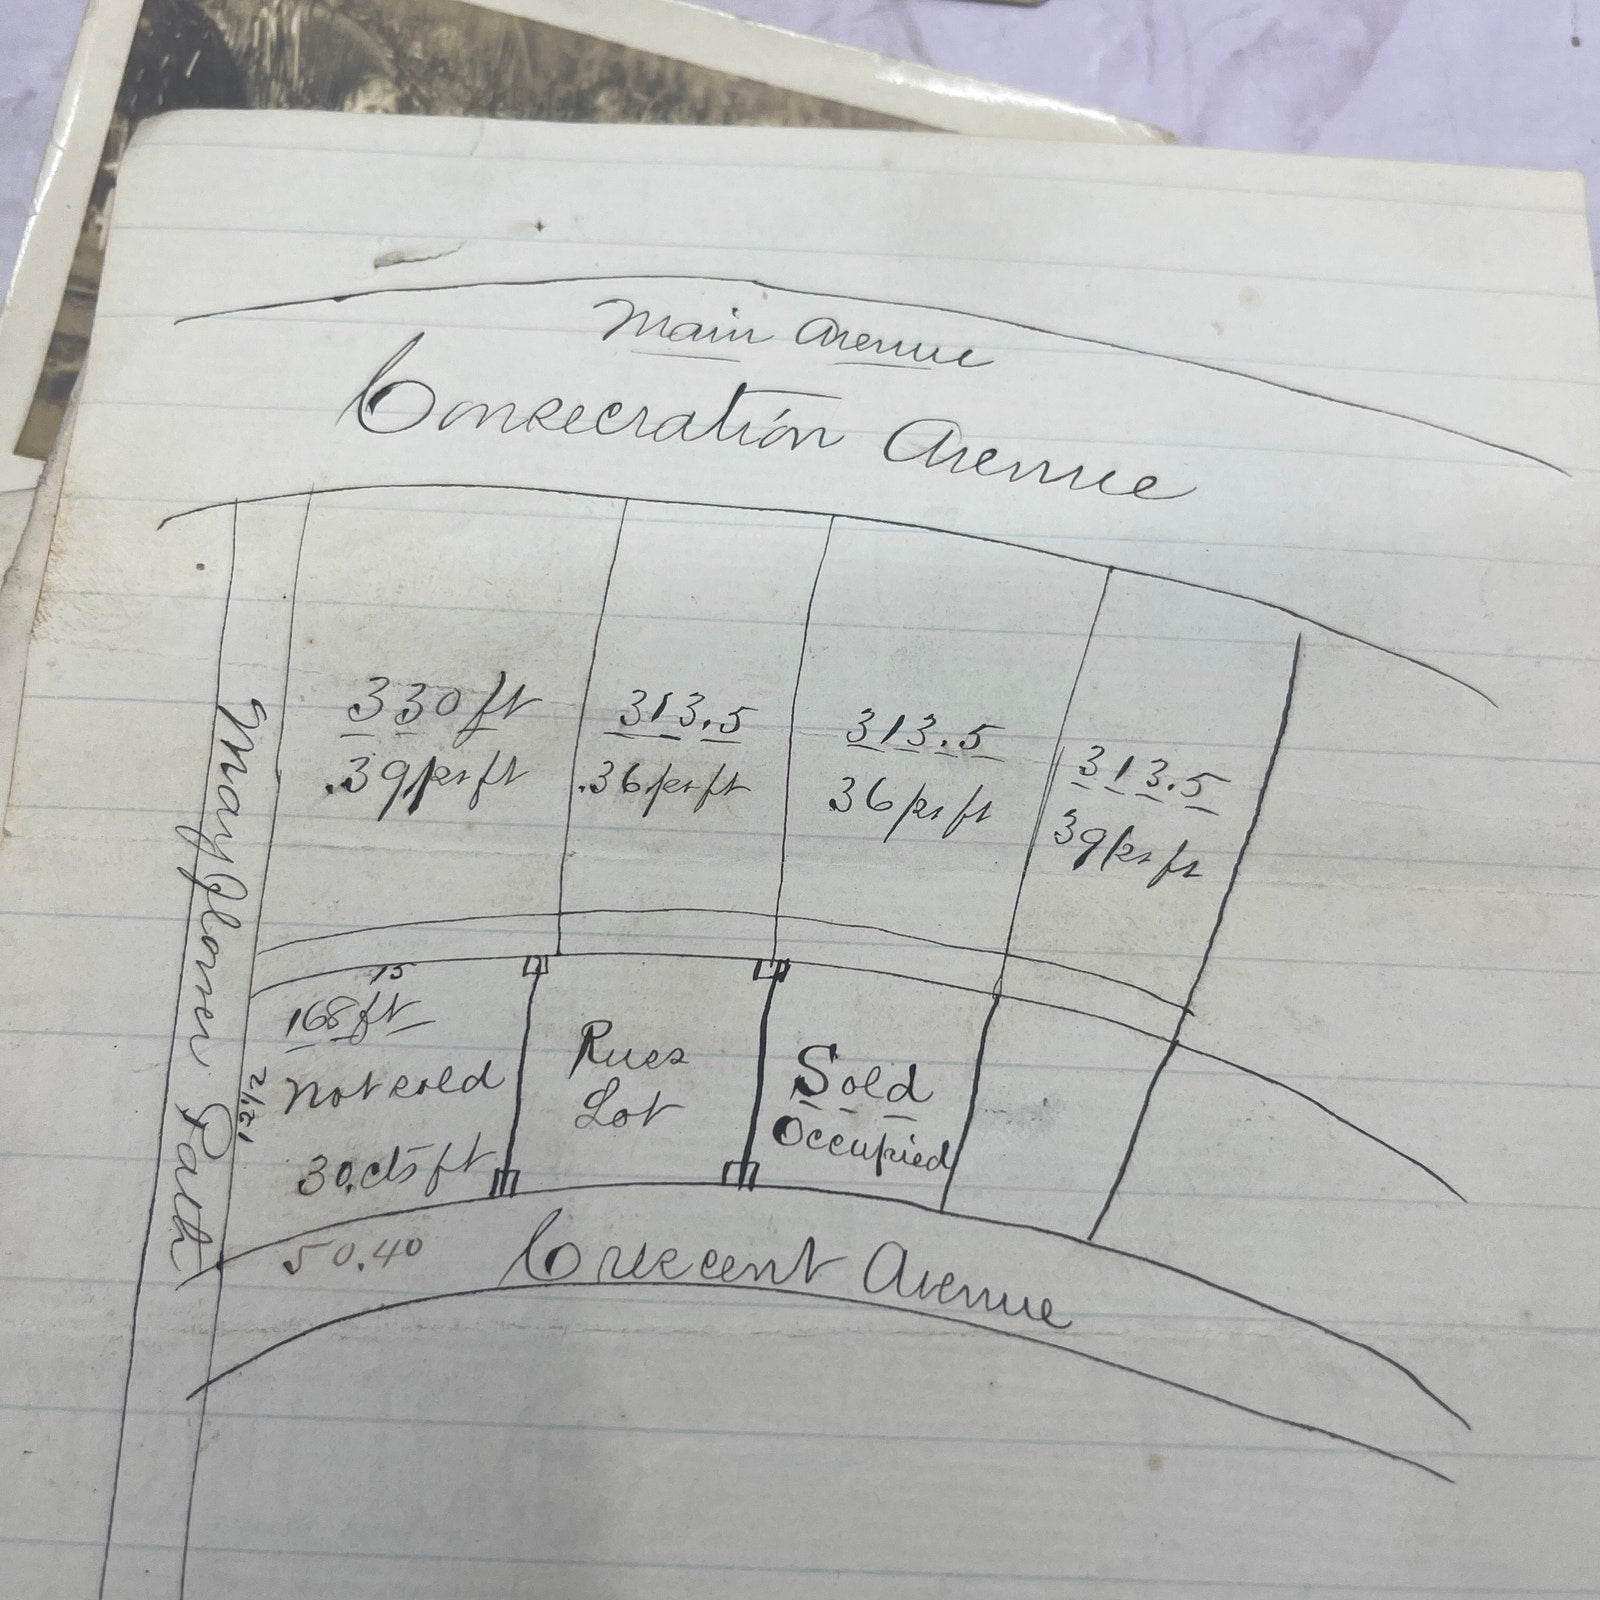 Main Avenue
Consecration Avenue
330 ft
.39 pr ft
313.5
.36 pr ft
313.5
36 pr ft
313.5
39 pr ft
Mayflower Path
15
168 ft
Not sold
30. cts ft
Rues
Lot
Sold
Occupied
50.40
Crescent Avenue